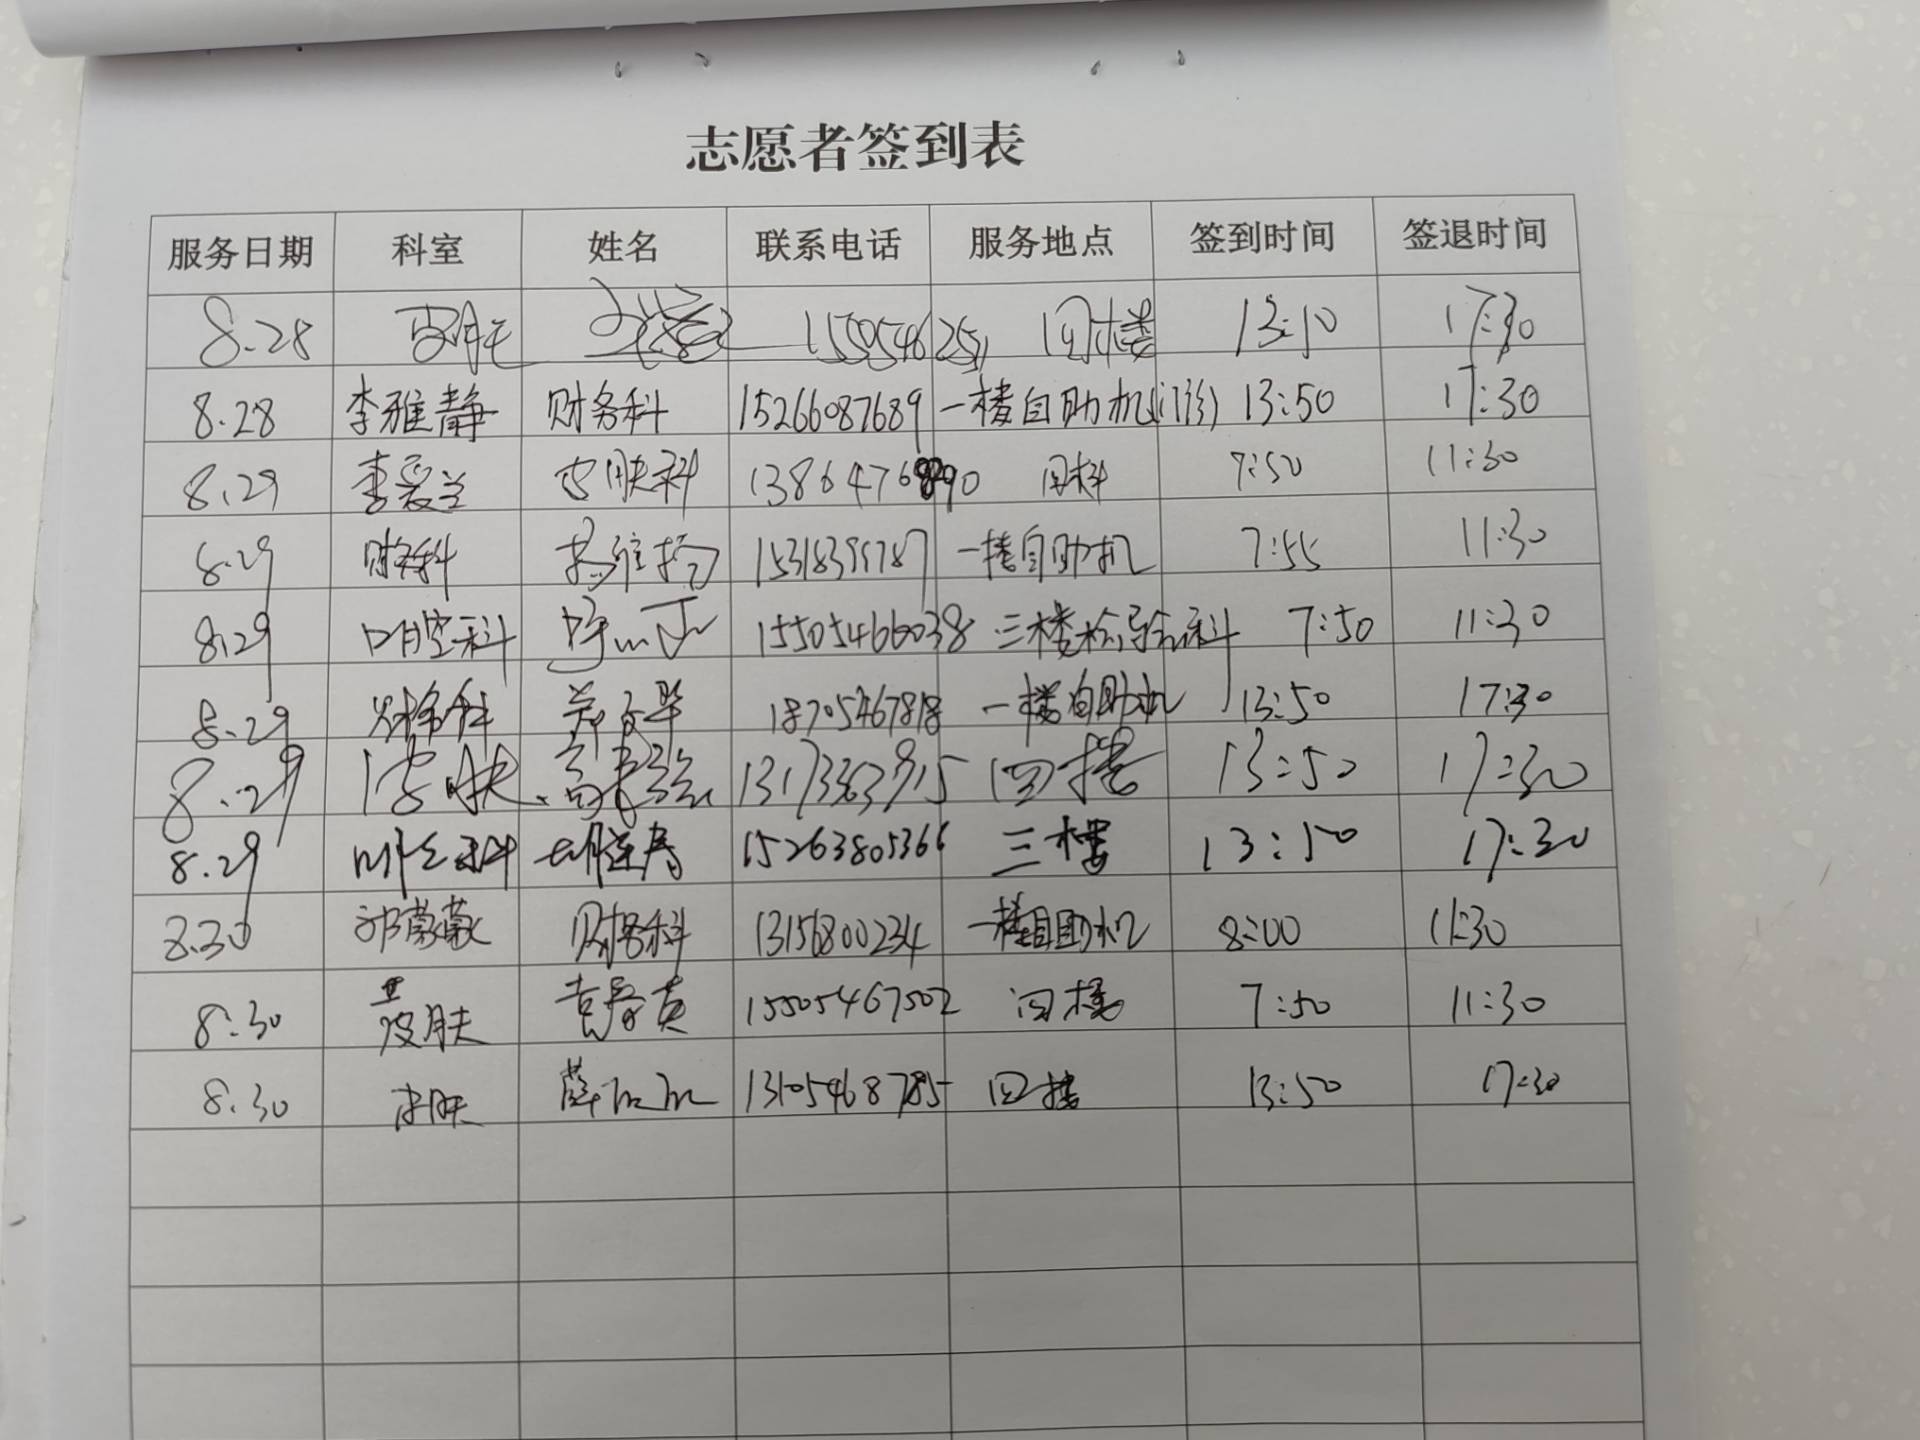 志愿者签到表
服务日期 科室 姓名 联系电话 服务地点 签到时间 签退时间
8.28 四楼 13:10 17:30
8.28 李雅静 财务科 15266087689 一楼自助机(门诊) 13:50 17:30
8.29 李爱兰 皮肤科 7:50 11:30
8.29 财务科 一楼自助机 7:55 11:30
8.29 口腔科 15505466038 三楼检验科 7:50 11:30
8.29 财务科 郑文华 18705467818 一楼自助机 13:50 17:30
8.29 皮肤 四楼 13:50 17:30
8.29 15263805366 三楼 13:50 17:30
8.30 祁蒙蒙 财务科 13156800234 一楼自助机 8:00 11:30
8.30 皮肤 袁春英 15505467502 四楼 7:50 11:30
8.30 皮肤 13105468785 四楼 13:50 17:30